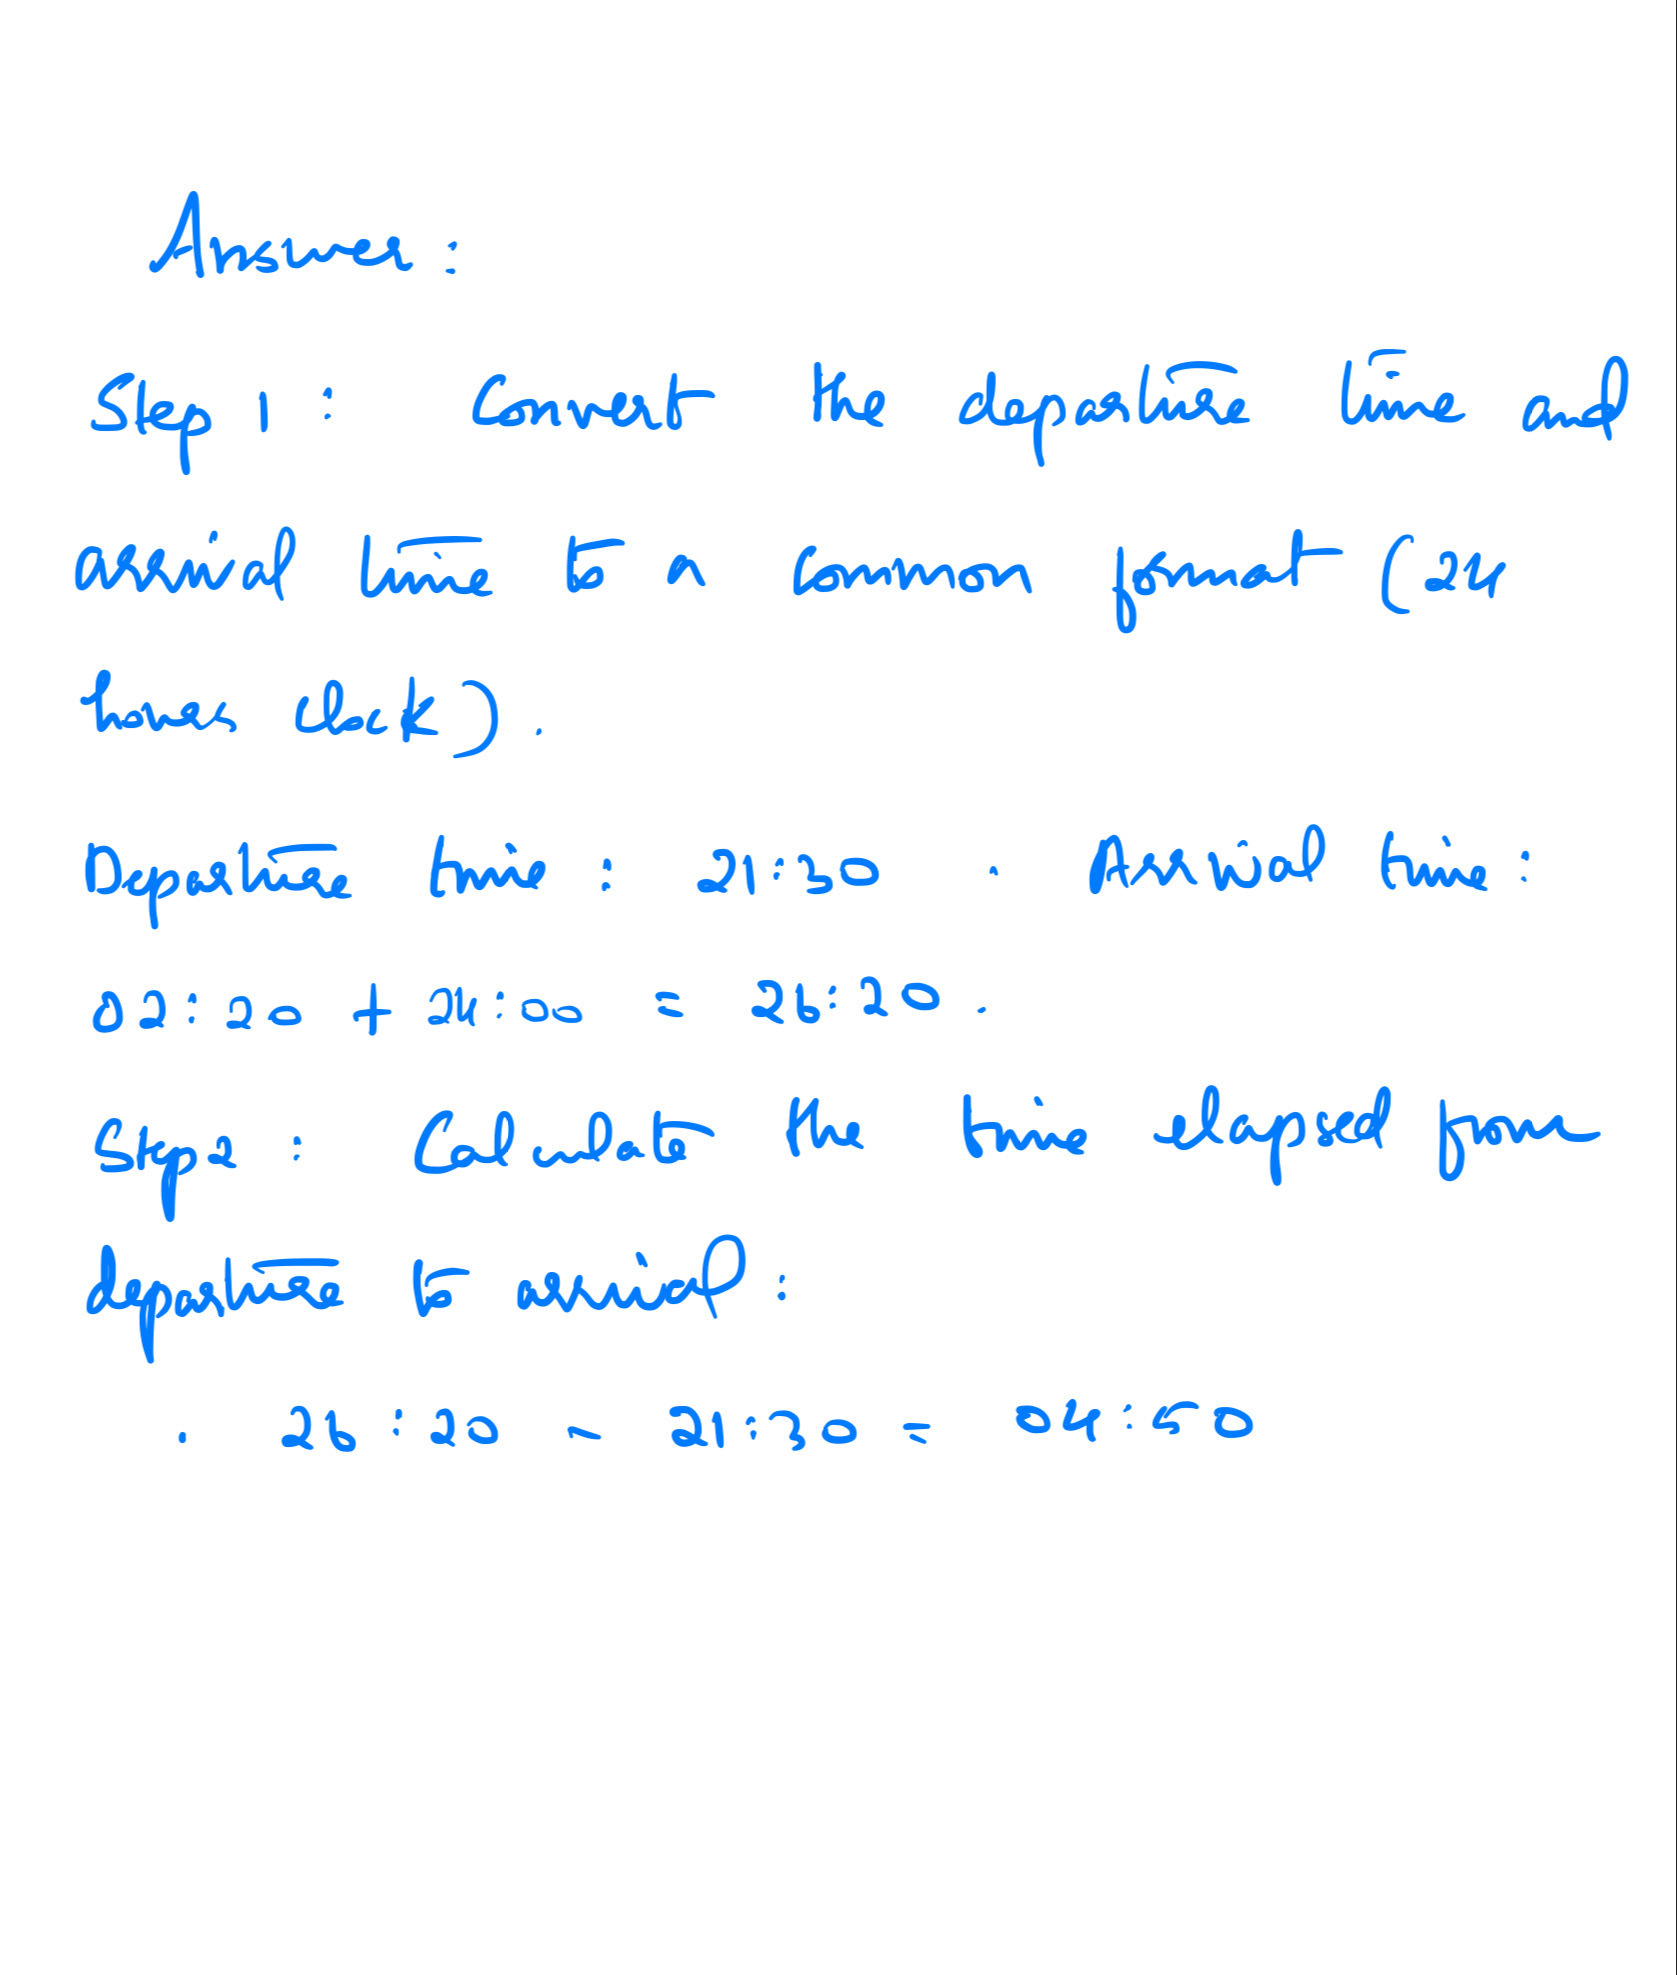 Answer:
Step 1: Convert the departure time and
arrival time to a common format (24
hours clock).
Departure time: 21:30 . Arrival time:
02:20 + 24:00 = 26:20.
Step 2: Calculate the time elapsed from
departure to arrival:
. 26:20 - 21:30 = 04:50